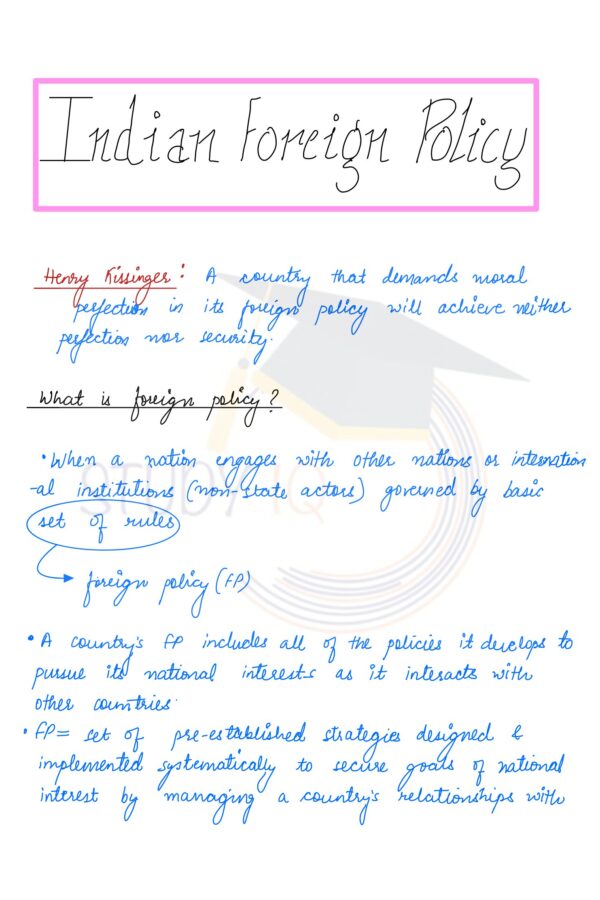 Indian Foreign Policy
Henry Kissinger: A country that demands moral
perfection in its foreign policy will achieve neither
perfection nor security.
What is foreign policy?
• When a nation engages with other nations or internation
-al institutions (non-state actors) governed by basic
set of rules
foreign policy (FP)
• A country's FP includes all of the policies it develops to
pursue its national interests as it interacts with
other countries.
• FP = set of pre-established strategies designed &
implemented systematically to secure goals of national
interest by managing a country's relationships with
STUDY IQ